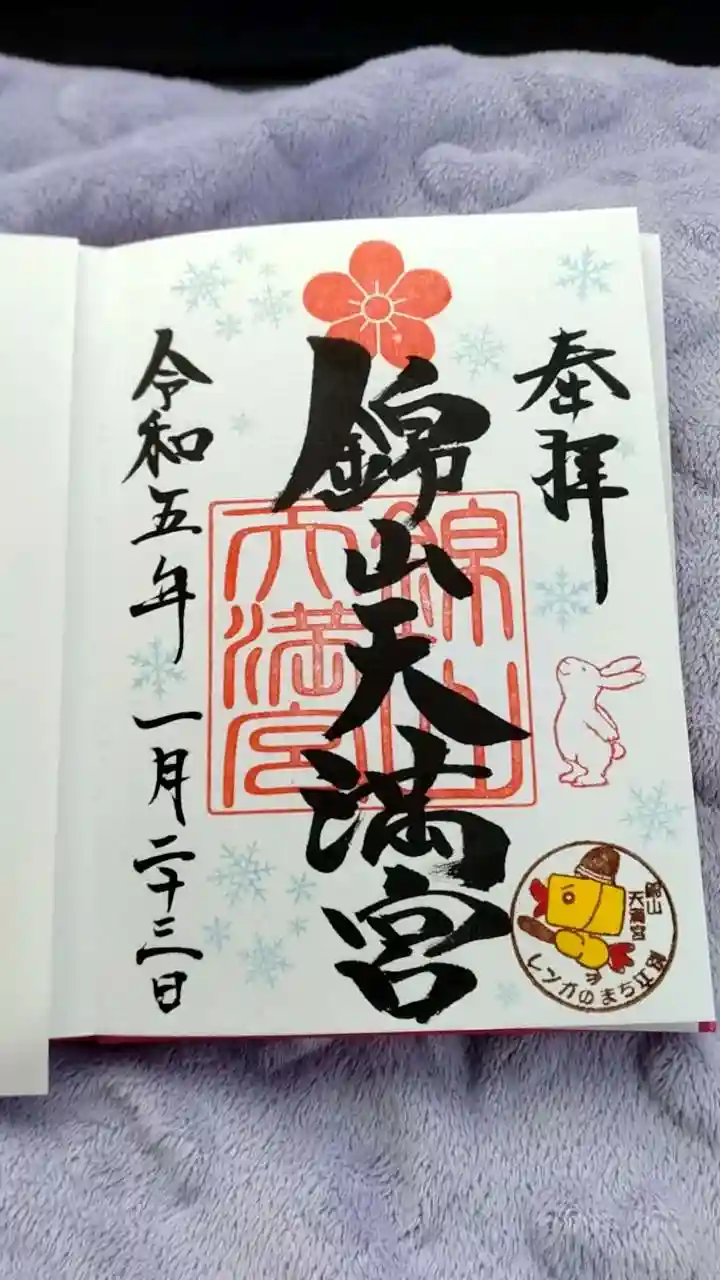 奉拝
錦山天満宮
錦山
天満宮
令和五年一月二十三日
錦山
天満宮
レンガのまち江別